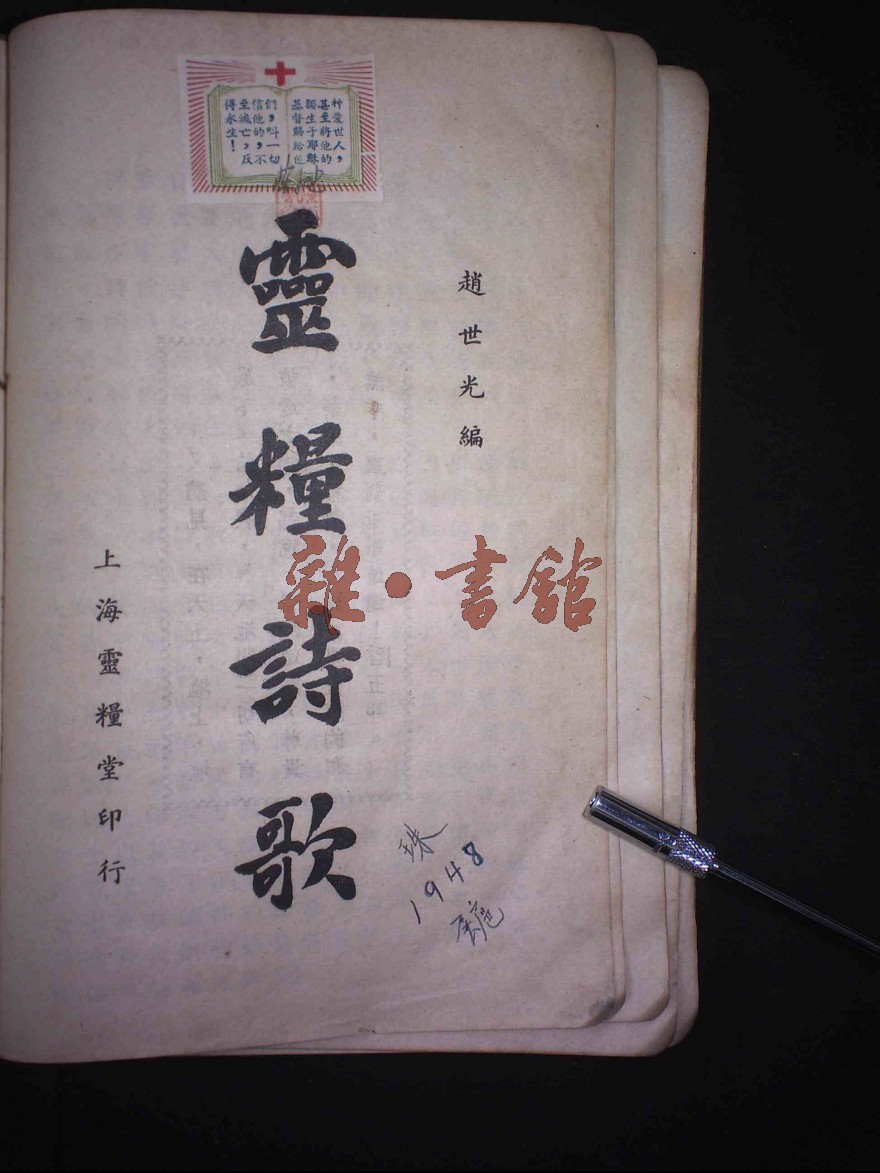 神愛世人,
甚至將他的
獨生子耶穌
基督賜給他
們,叫一切
信他的,不
至滅亡,反
得永生!
趙世光編
靈糧詩歌
上海靈糧堂印行
雜·書館
珠
1948